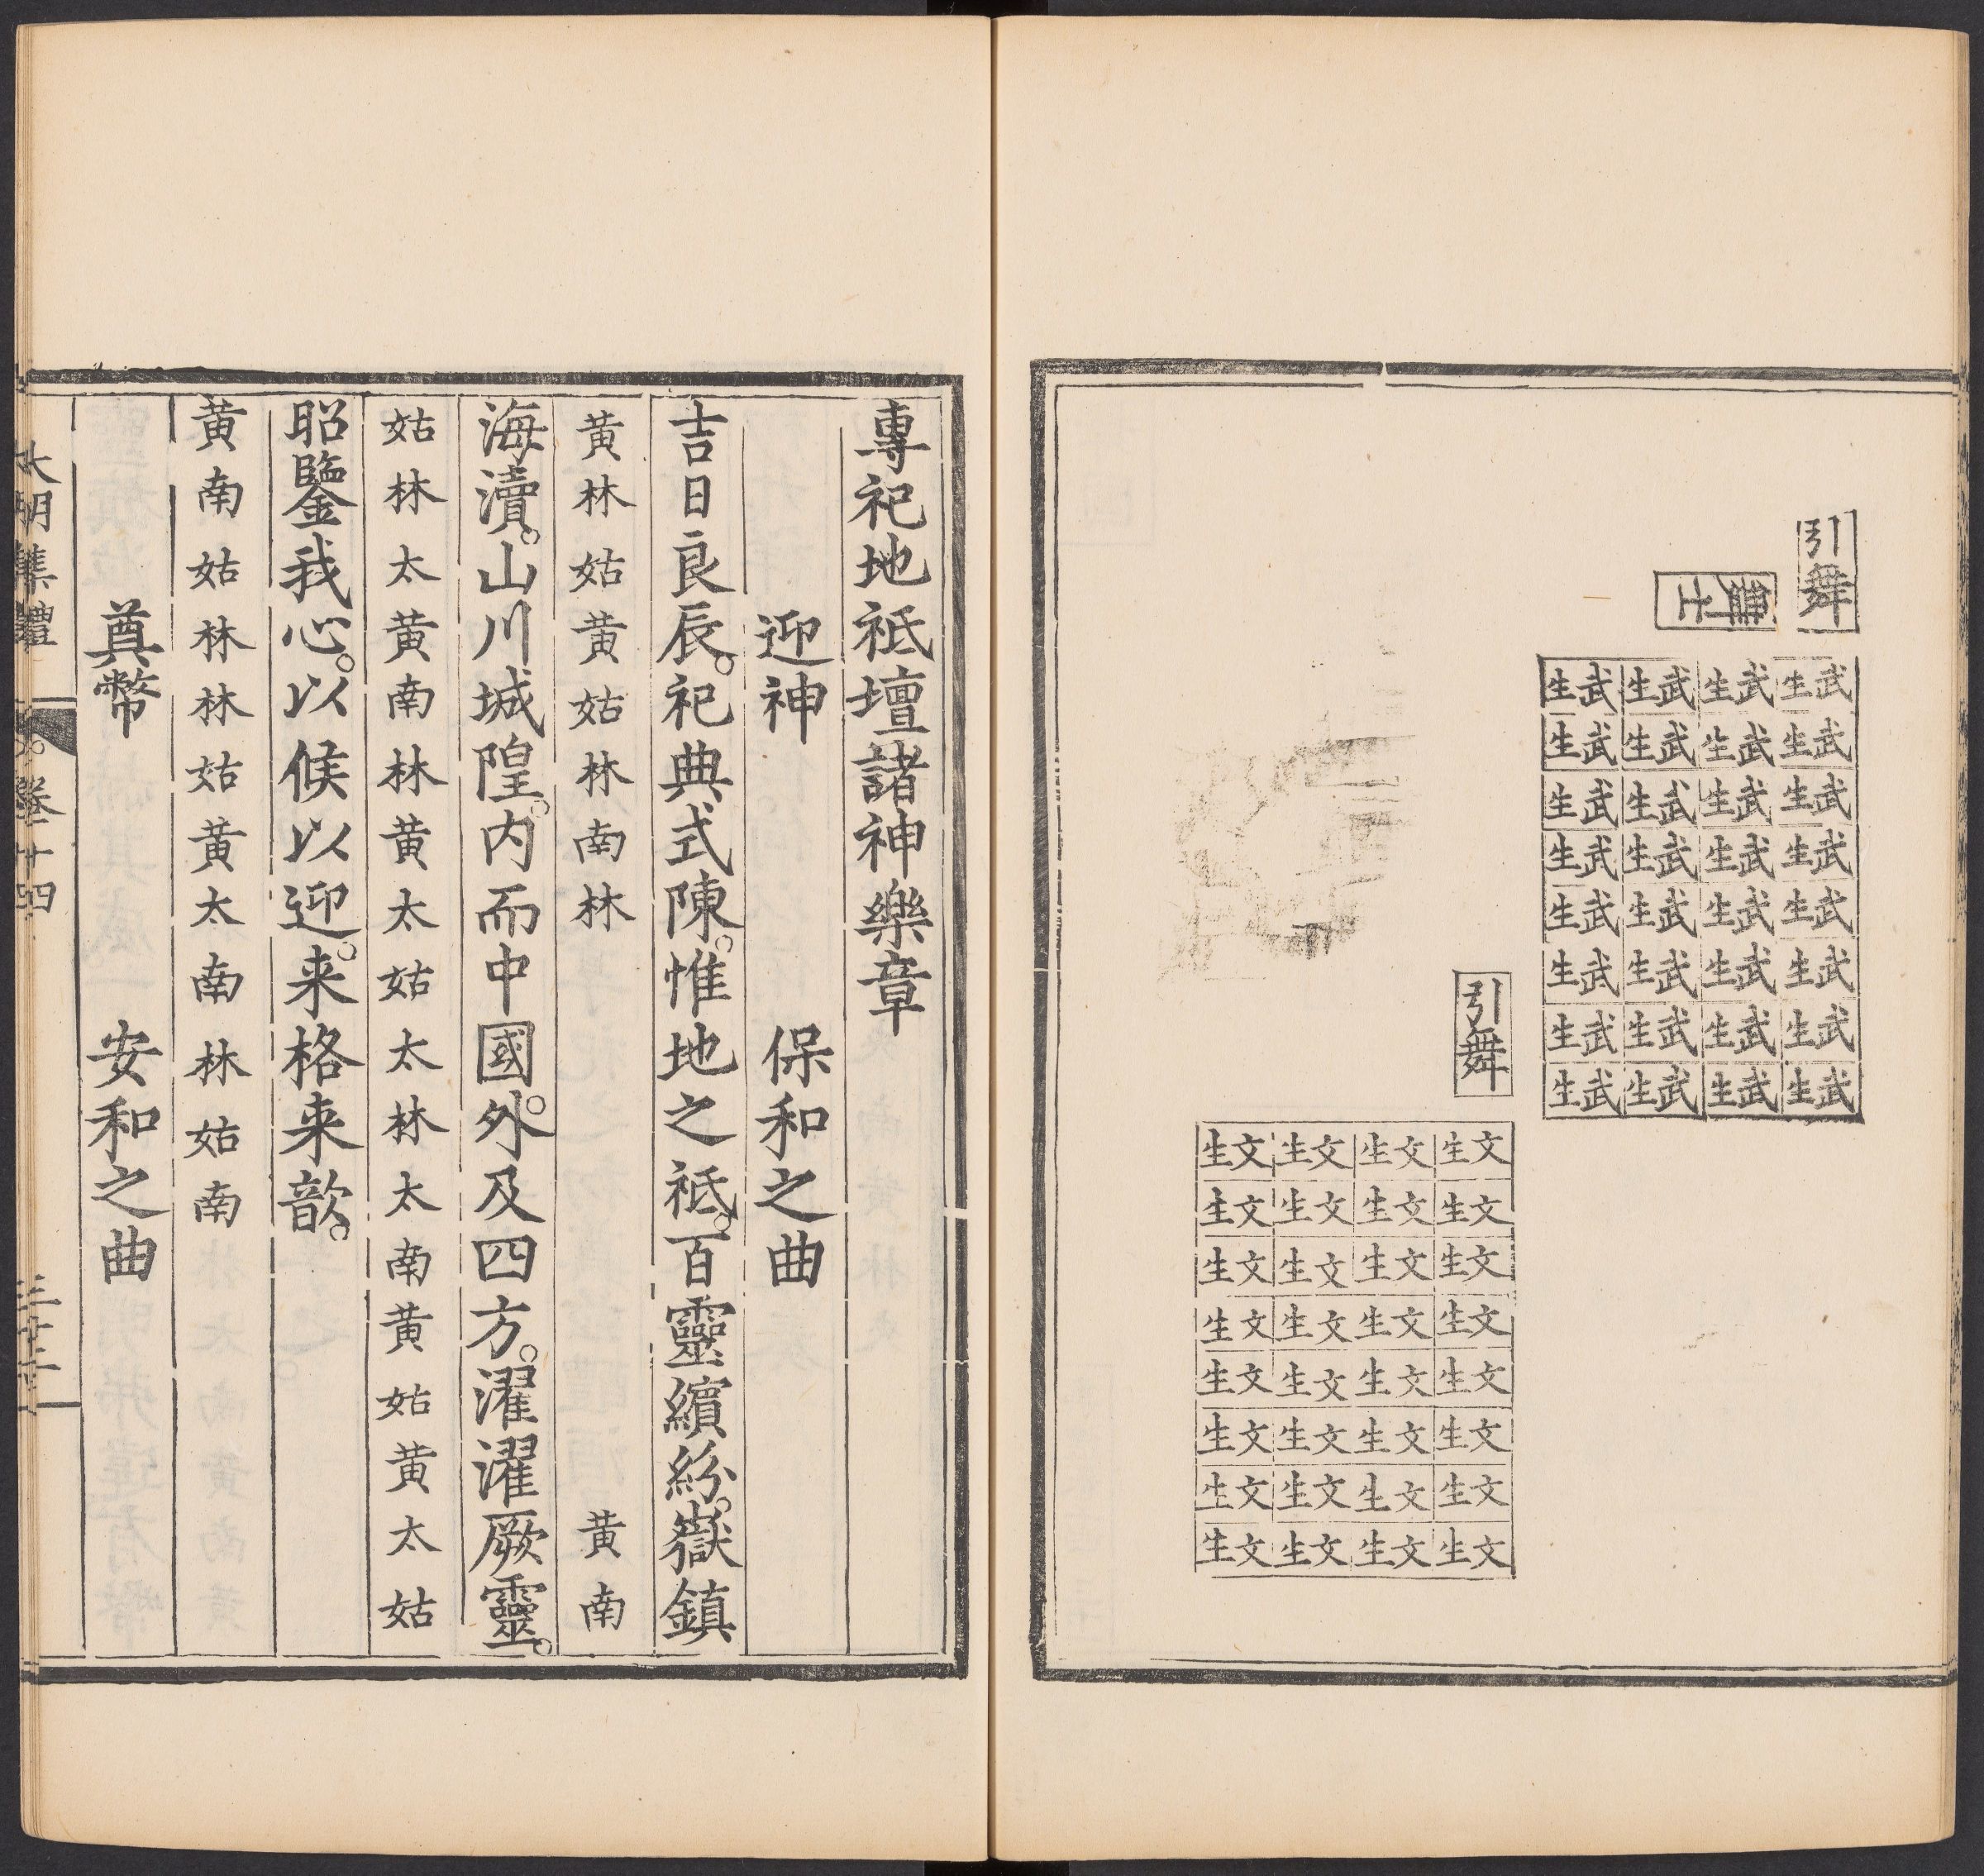 引舞
舞士
武生 武生 武生 武生
武生 武生 武生 武生
武生 武生 武生 武生
武生 武生 武生 武生
武生 武生 武生 武生
武生 武生 武生 武生
武生 武生 武生 武生
武生 武生 武生 武生
引舞
文生 文生 文生 文生
文生 文生 文生 文生
文生 文生 文生 文生
文生 文生 文生 文生
文生 文生 文生 文生
文生 文生 文生 文生
文生 文生 文生 文生
文生 文生 文生 文生
專祀地祇壇諸神樂章
迎神 保和之曲
吉日良辰。祀典式陳。惟地之祇。百靈繽紛。嶽鎮
黃林姑黃姑林南林 黃南
海瀆。山川城隍。内而中國。外及四方。濯濯厥靈。
姑林太黃南林黃太姑太林太南黃姑黃太姑
昭鑒我心。以候以迎。来格来歆。
黃南姑林林姑黃太南林姑南
奠幣 安和之曲
大明集禮 卷十四